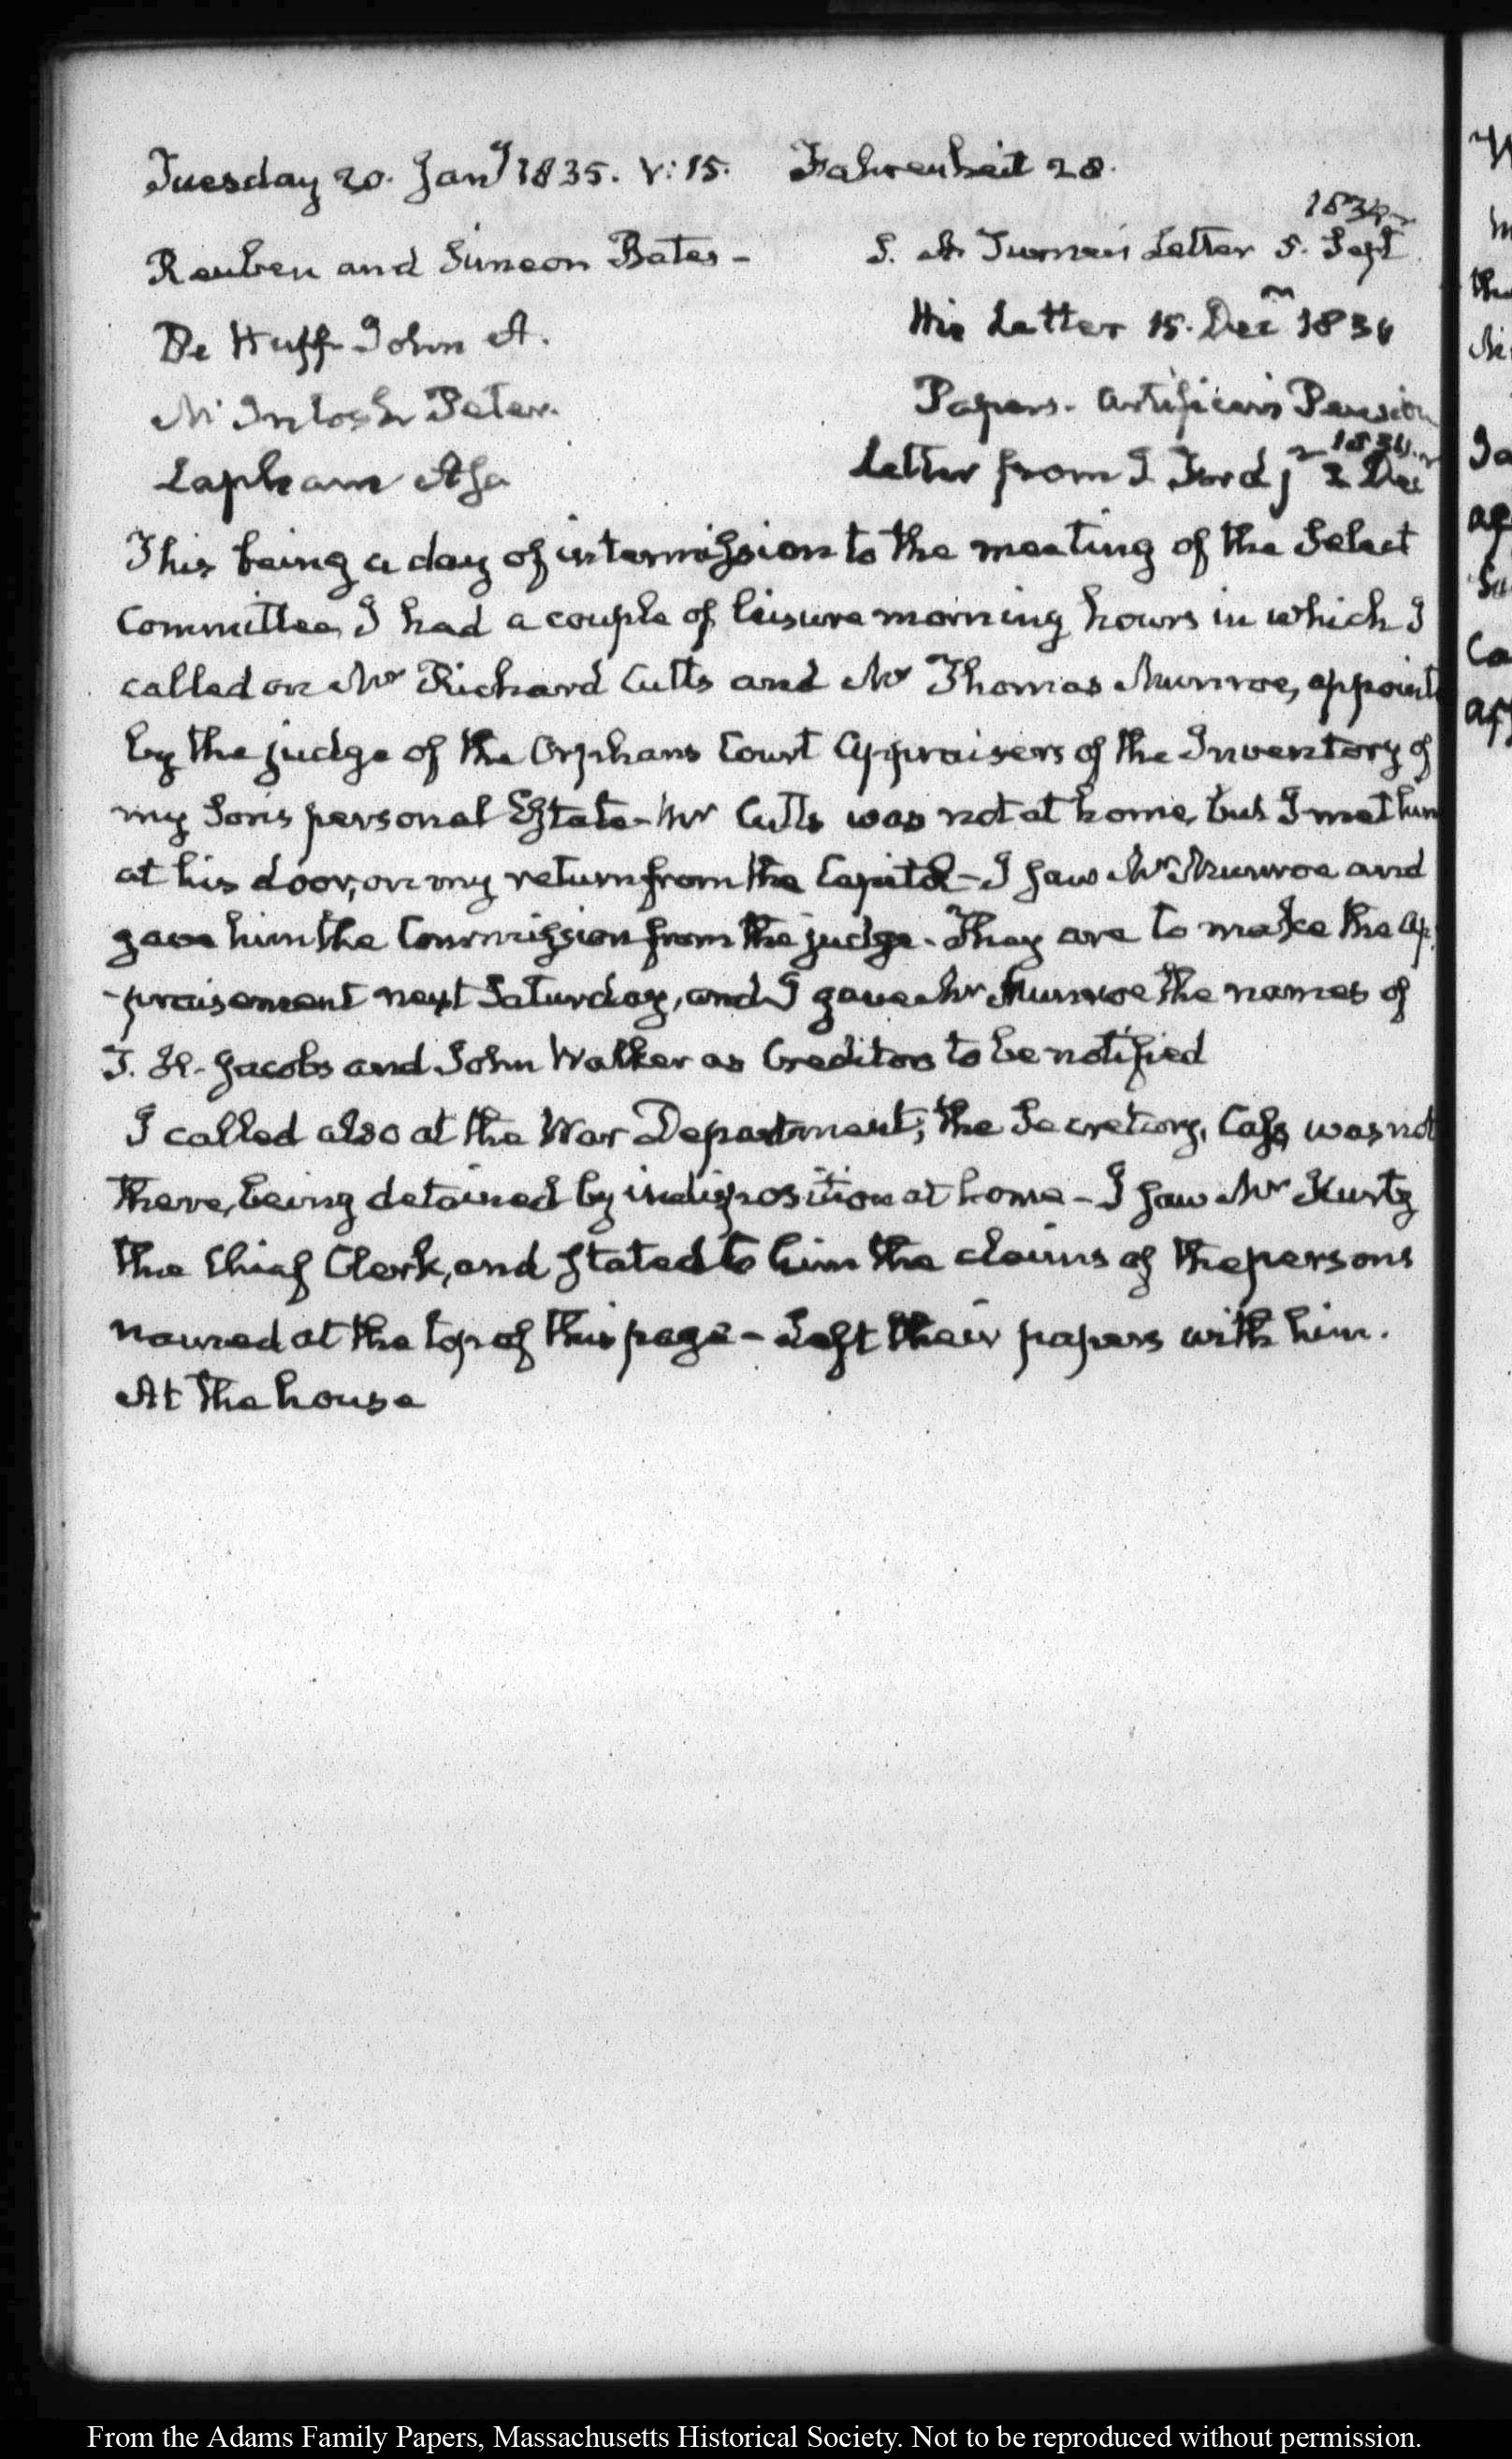 Tuesday 20. Jany 1835. V:15. Fahrenheit 28.
Reuben and Simeon Bates – S. A. Turner's Letter 5. Sept 1834
De Huff John A. His Letter 15. Decr 1834
McIntosh Peter. Papers. Artificer's Pension
Lapham Asa Letter from I Ford jr 2 Dec 1834
This being a day of intermission to the meeting of the Select
Committee, I had a couple of leisure morning hours in which I
called on Mr Richard Cutts and Mr Thomas Munroe, appoint
by the judge of the Orphans Court Appraisers of the Inventory of
my Son's personal Estate – Mr Cutts was not at home, but I met him
at his door, on my return from the Capitol – I saw Mr Munroe and
gave him the Commission from the judge. They are to make the Ap
-praisement next Saturday, and I gave Mr Munroe the names of
T. H. Jacobs and John Walker as Creditors to be notified
I called also at the War Department; the Secretary, Cass, was not
there, being detained by indisposition at home – I saw Mr Kurtz
the Chief Clerk, and stated to him the claims of the persons
named at the top of this page – Left their papers with him.
At the house
Ja
Ca
From the Adams Family Papers, Massachusetts Historical Society. Not to be reproduced without permission.